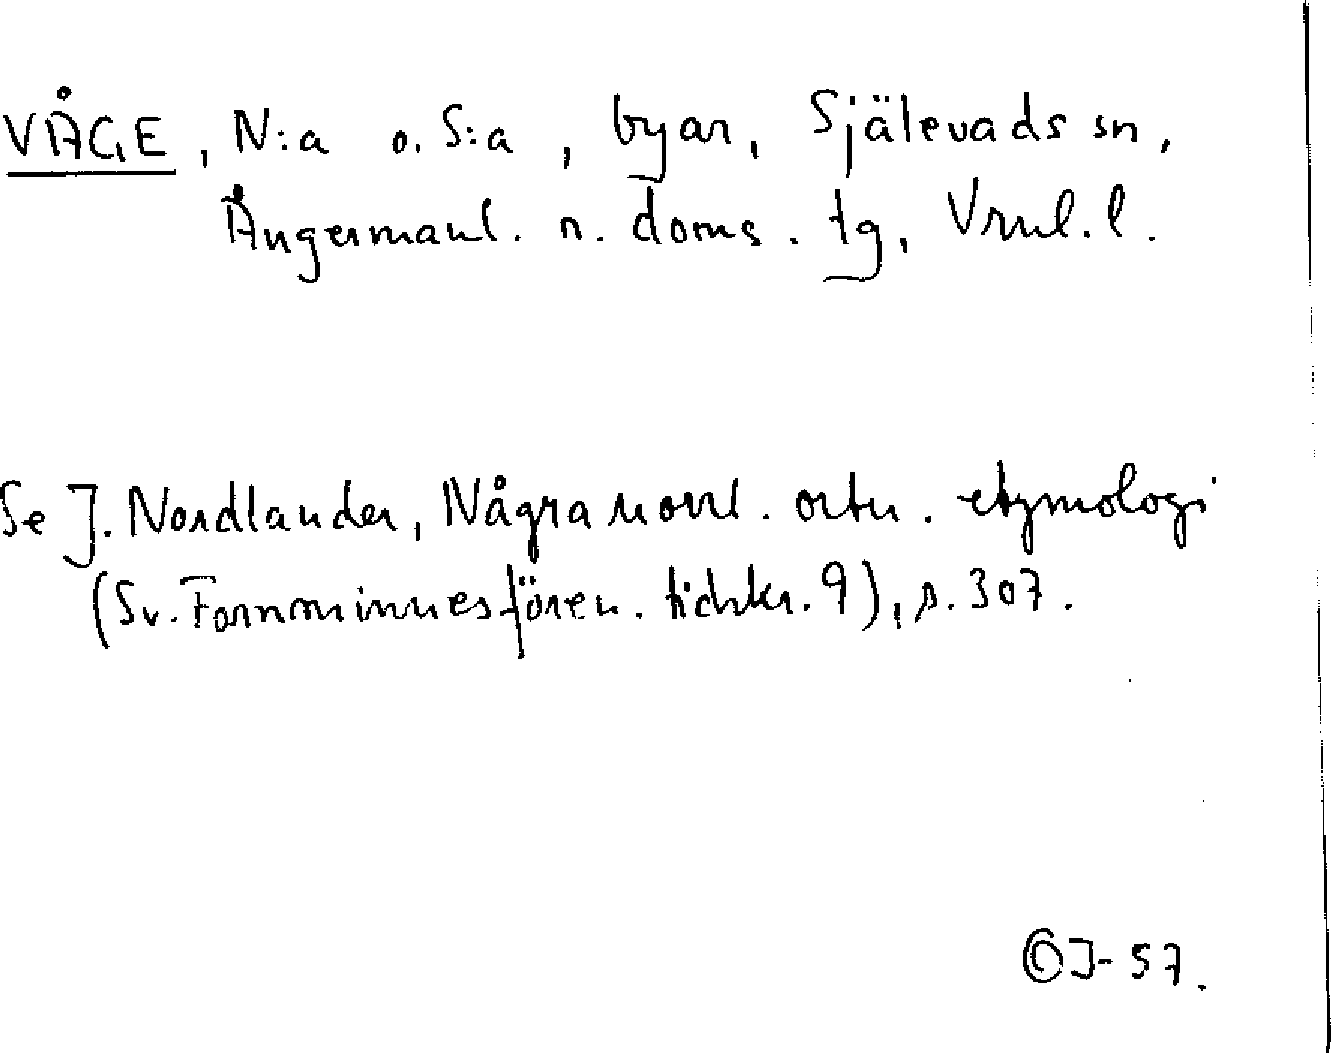 VÅGE, N:a o. S:a, byar, Själevads sn,
Ångermanl. n. doms. tg, Vrnl. l.
Se J. Nordlander, Några norrl. ortn. etymologi
(Sv. Fornminnesfören. tidskr. 9), s. 307.
©J-57.